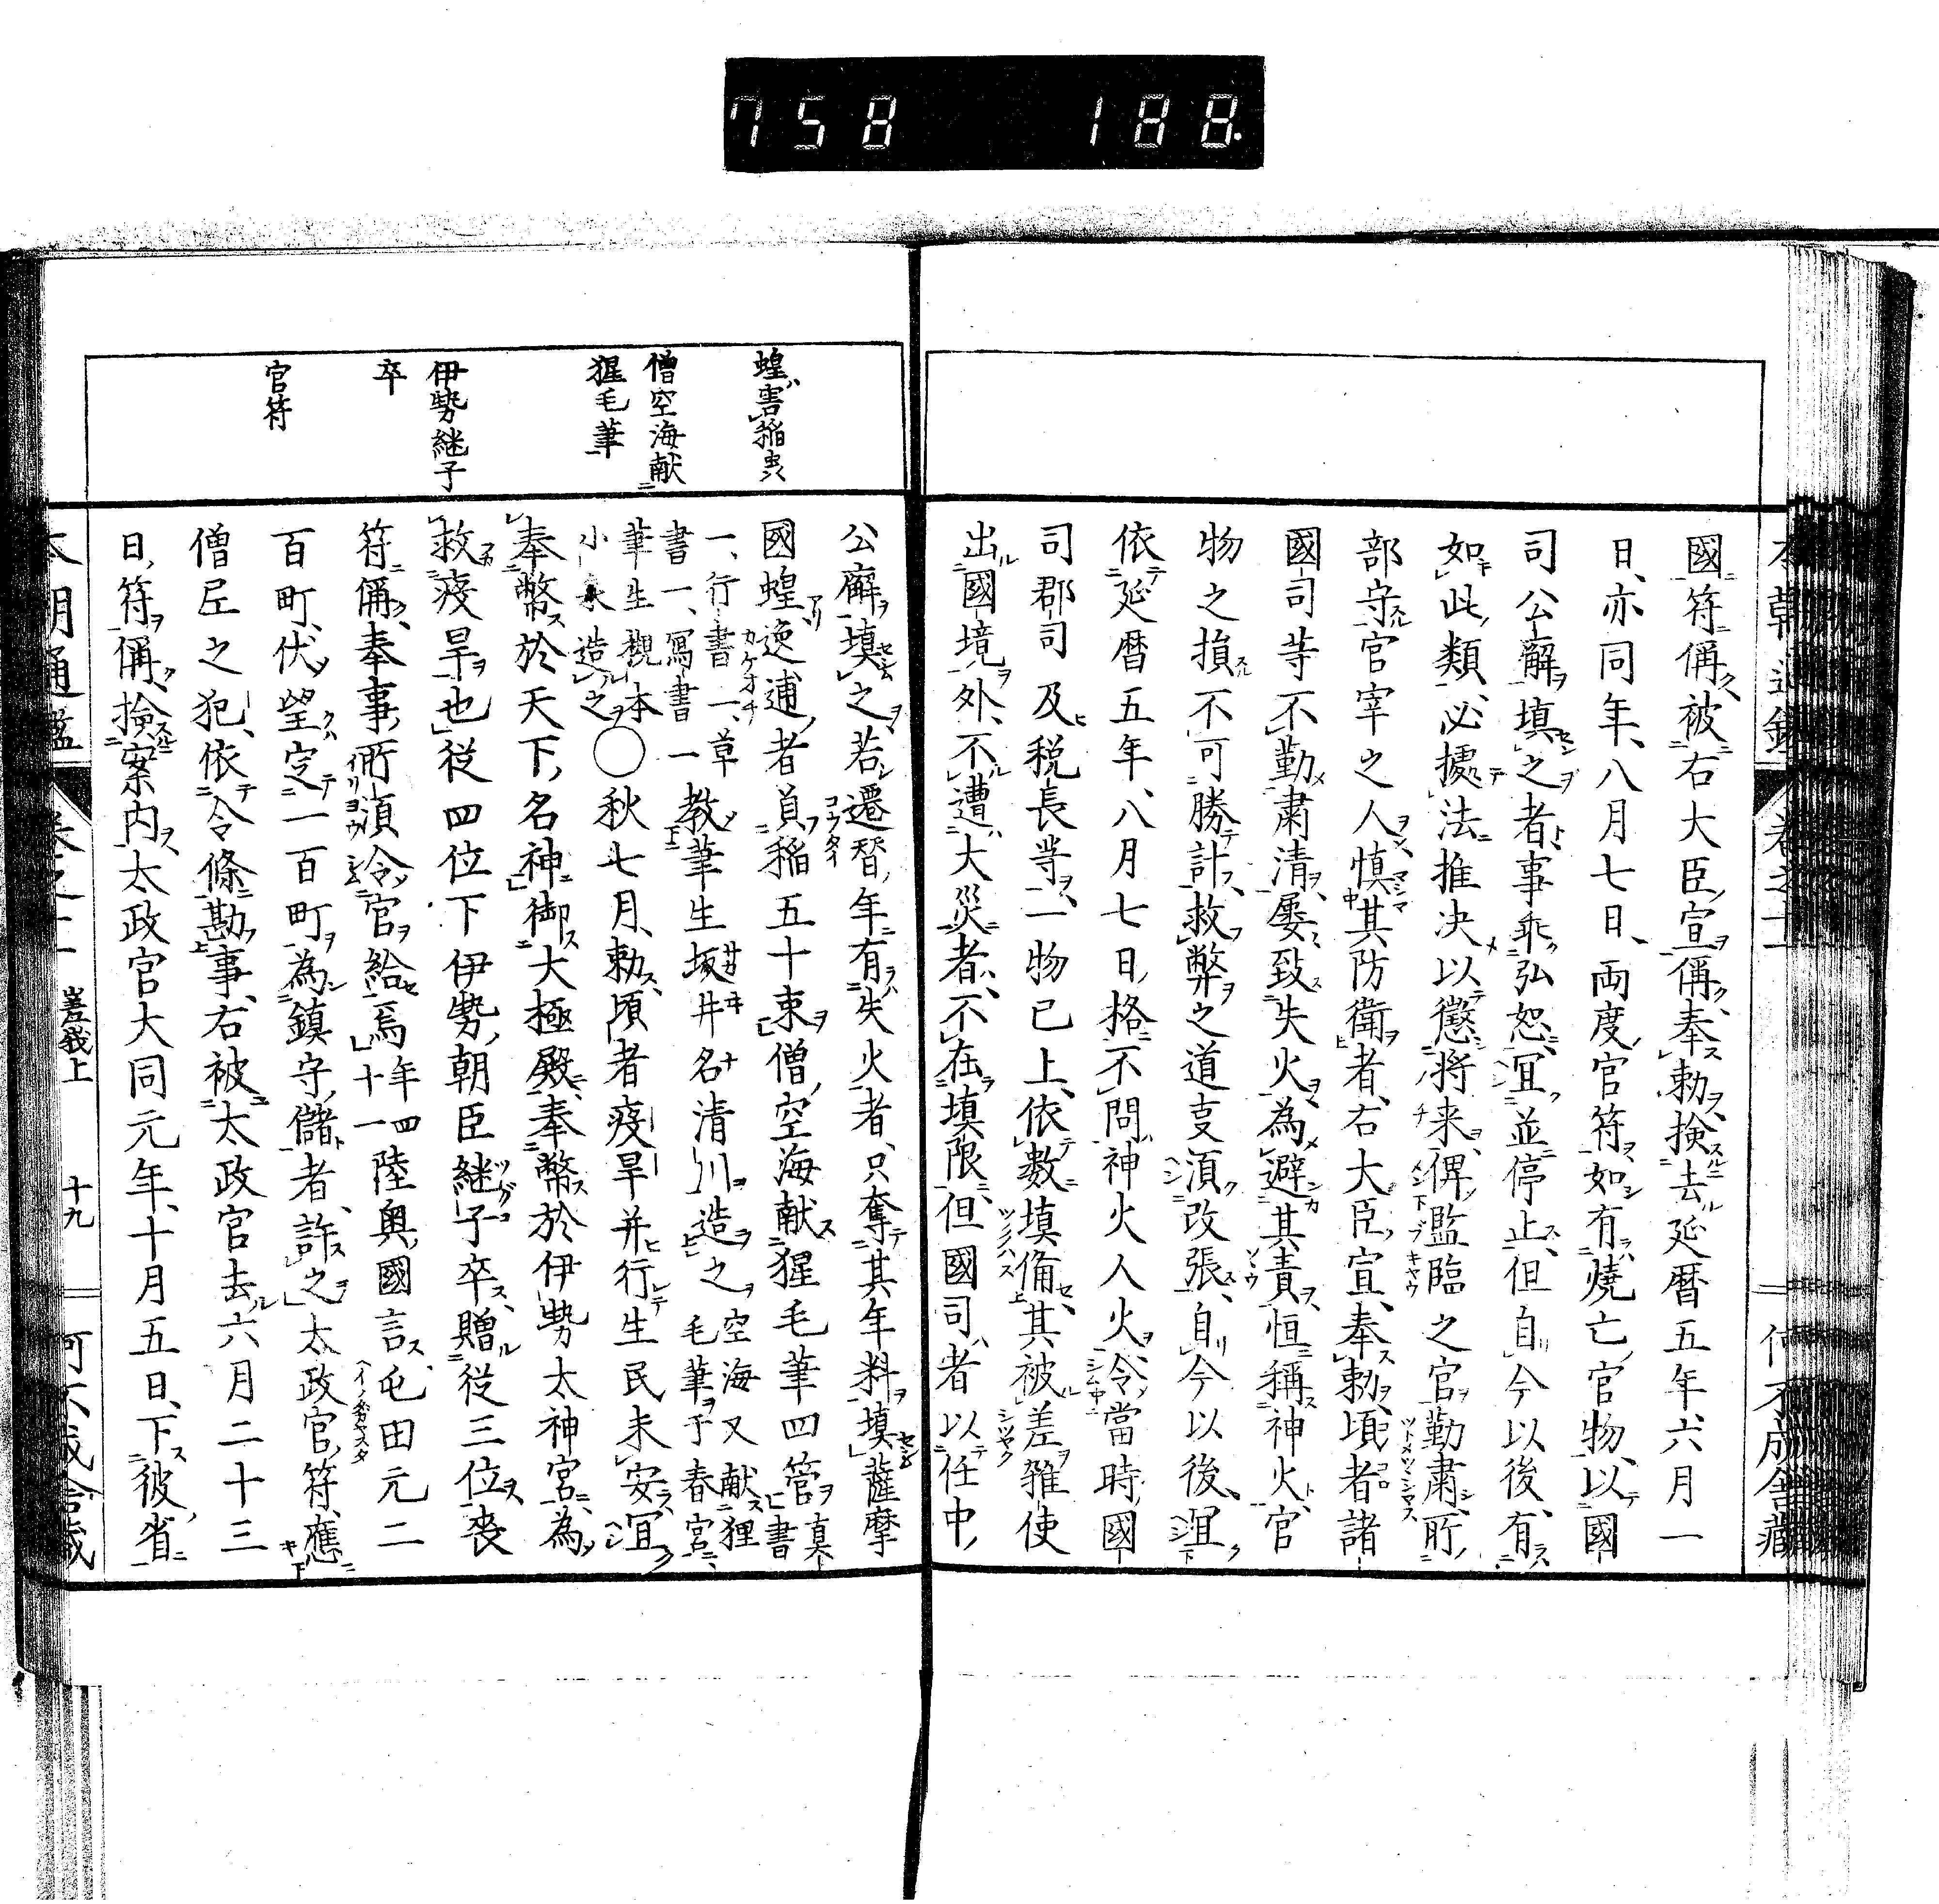 758 188
國符偁被右大臣宣偁奉勅檢去延曆五年六月一
日亦同年八月七日両度官符如有燒亡官物以國
司公廨填之者事乖弘恕冝並停止但自今以後有
如此類必據法推决以懲將来俾監臨之官勤肅所
部守官宰之人慎其防衛者右大臣宣奉勅頃者諸
國司等不勤肅清屡致失火為避其責恒稱神火官
物之損不可勝計救弊之道㕝湏改張自今以後冝
依延曆五年八月七日格不問神火人火令當時國
司郡司及税長等一物已上依數填俻其被差雜使
出國境外不遭大災者不在填限但國司者以任中
公廨填之若遷替年有失火者只奪其年料填薩摩
國蝗逋者負稲五十束僧空海献狸毛筆四管真書
一行書一草
書一寫書一教筆生坂井名清川造之空海又献狸
毛筆于春宮
筆生槻本
小泉造之〇秋七月勅頃者疫旱并行生民未安冝
奉幣於天下名神御大極殿奉幣於伊勢太神宮為
救疫旱也從四位下伊勢朝臣継子卒贈從三位喪
符偁奉事所湏令官給焉年四
十一陸奥國言屯田元二
百町伏望定一百町為鎮守儲者許之太政官符應
僧尼之犯依令條勘事右被太政官去六月二十三
日符偁撿案内太政官大同元年十月五日下彼省
蝗害稲䖝
僧空海献
狸毛筆
伊勢継子
卒
官符
本朝通鑑 巻之二十 嵯峨上 十九 何不成舎蔵